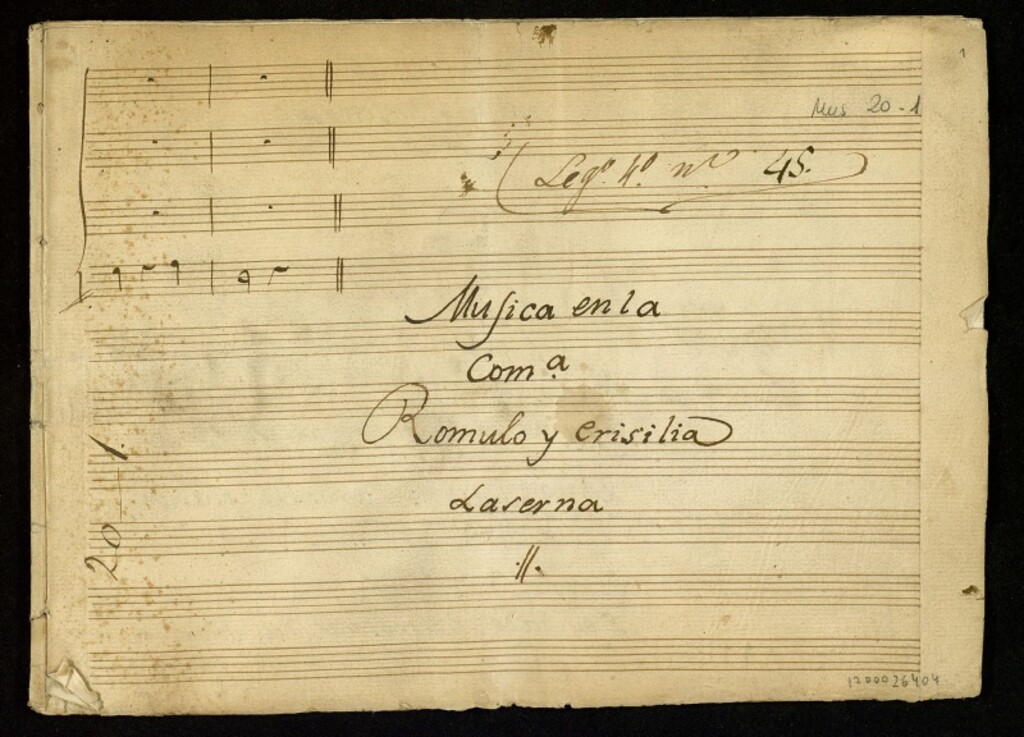 1
Mus 20-1
Leg.º 4.º n.º 45.
Musica en la
Com.ª
Romulo y Erisilia
Laserna
20-1.
1200026404